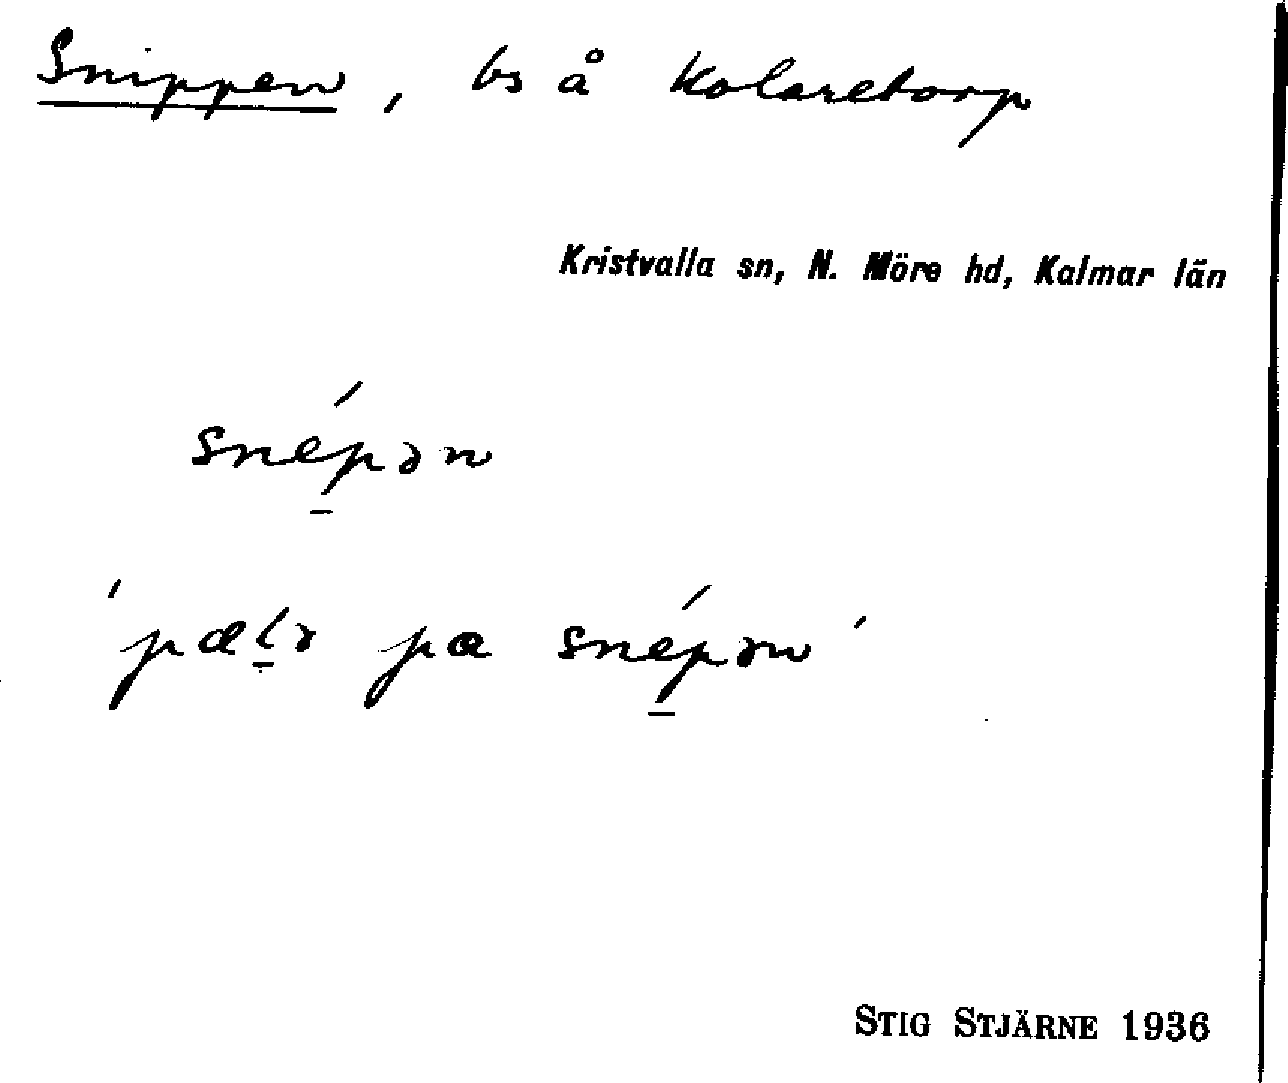 Snippen, bs å Kolaretorp
Kristvalla sn, N. Möre hd, Kalmar län
snép̱ən
'pæḻə pa snép̱ən'
STIG STJÄRNE 1936